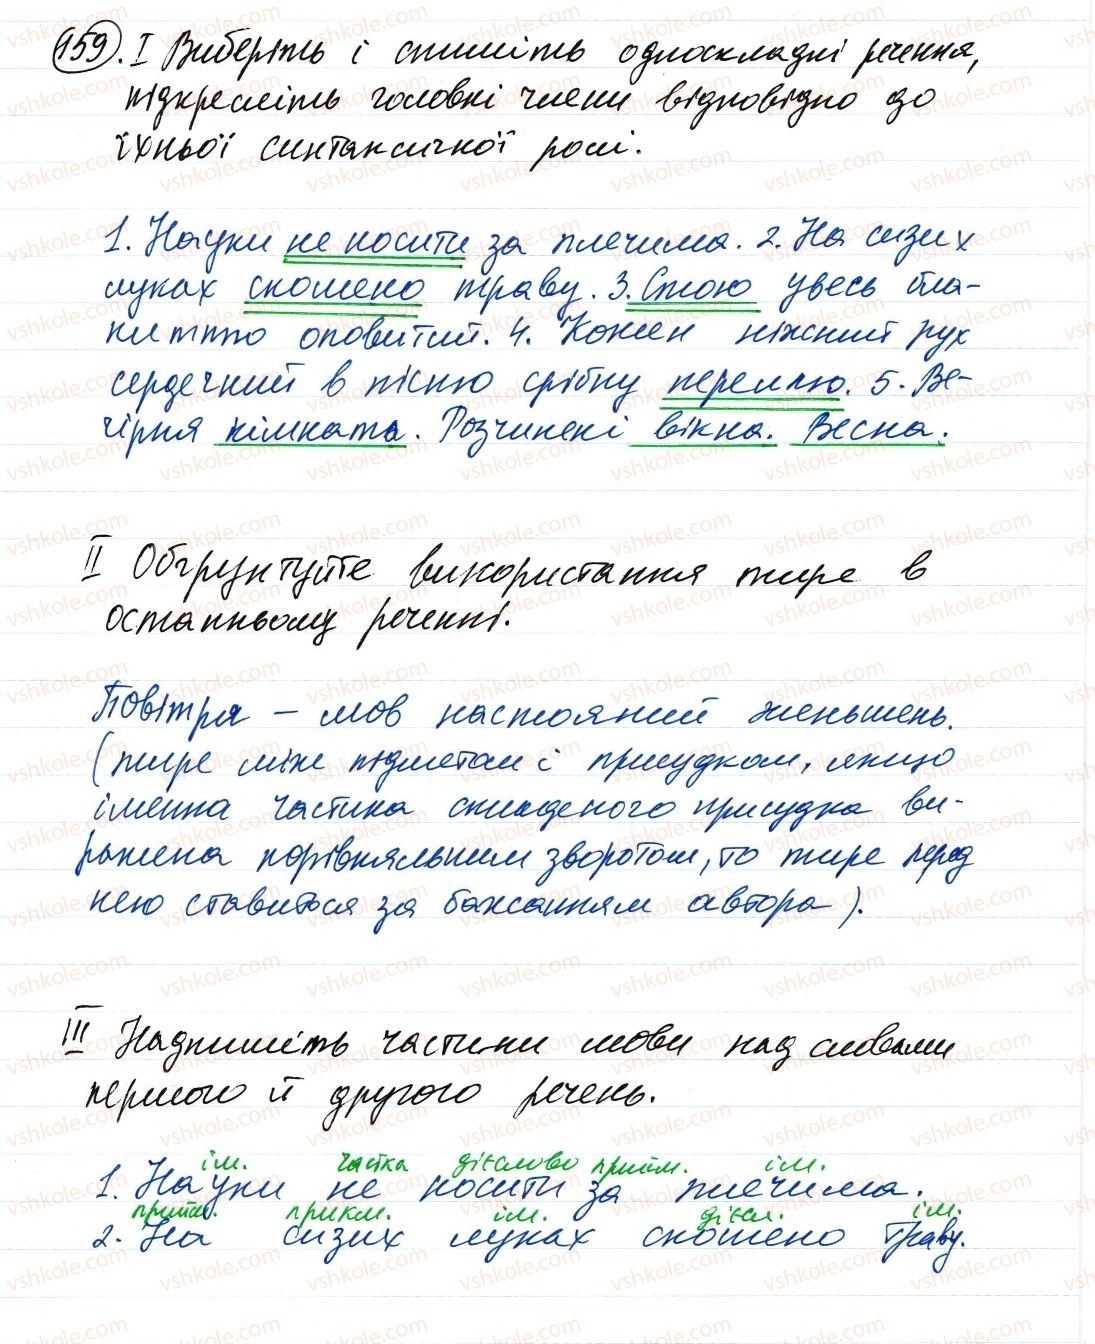 159. I Виберіть і спишіть односкладні речення,
підкресліть головні члени відповідно до
їхньої синтаксичної ролі.
1. Науки не носити за плечима. 2. На сизих
луках скошено траву. 3. Стою увесь бла-
киттю оповитий. 4. Кожен ніжний рух
сердечний в пісню срібну переллю. 5. Ве-
чірня кімната. Розчинені вікна. Весна.
II Обґрунтуйте використання тире в
останньому реченні.
Повітря – мов настояний женьшень.
(тире між підметом і присудком, якщо
іменна частина складеного присудка ви-
ражена порівняльним зворотом, то тире перед
нею ставиться за бажанням автора).
III Надпишіть частини мови над словами
першого й другого речень.
ім. частка дієслово прийм. ім.
1. Науки не носити за плечима.
прийм. прикм. ім. дієсл. ім.
2. На сизих луках скошено траву.